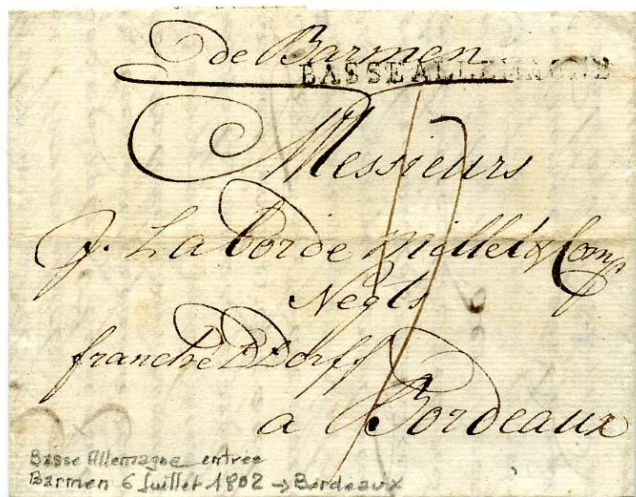 de Barmen
BASSE ALLEMAGNE
Messieurs
J. Laborde Millet & Comp
Negts
franche D Dorff
a Bordeaux
Basse Allemagne entree
Barmen 6 Juillet 1802 → Bordeaux